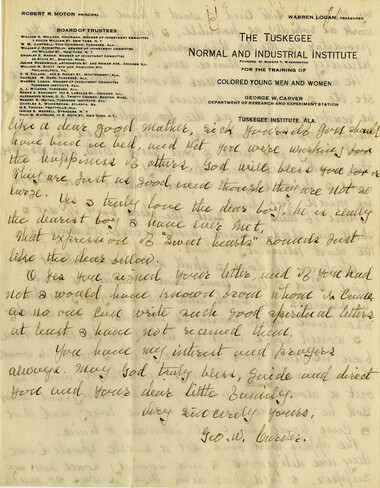 ROBERT R. MOTON PRINCIPAL
WARREN LOGAN, TREASURER
BOARD OF TRUSTEES
THE TUSKEGEE
NORMAL AND INDUSTRIAL INSTITUTE
FOUNDED BY BOOKER T. WASHINGTON
FOR THE TRAINING OF
COLORED YOUNG MEN AND WOMEN
GEORGE W. CARVER
DEPARTMENT OF RESEARCH AND EXPERIMENT STATION
TUSKEGEE INSTITUTE, ALA.
like a dear good mother, sick yourself you should
have been in bed, and yet you were working for
the happiness of others, God will bless you for it
They are just as good even though they are not so
large.
Yes I truly love the dear boy, he is really
the dearest boy I have ever met,
That expression of "sweet hearts" sounds just
like the dear fellow.
O yes you signed your letter, and if you had
not I would have known from whom it came
as no one can write such good spiritual letters
at least I have not received them.
You have my interest and prayers
always. May God truly bless, guide and direct
you and your dear little family.
Very sincerely yours,
Geo. W. Carver.